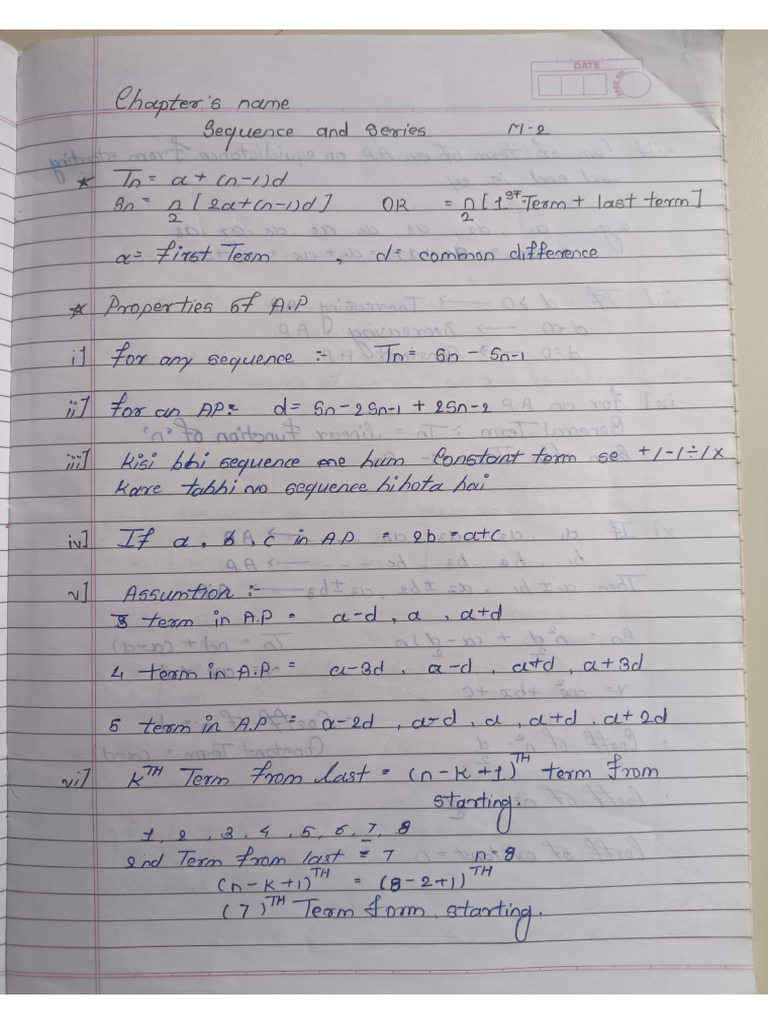 DATE
Chapter's name
Sequence and Series M-2
* Tn = a + (n-1)d
Sn = n/2 [2a+(n-1)d] OR = n/2 [1ST Term + last term]
a = first Term , d = common difference
* Properties of A.P
i] for any sequence :- Tn = Sn - Sn-1
ii] for an AP = d = Sn - 2Sn-1 + 2Sn-2
iii] Kisi bhi sequence me hum Constant term se +/-/÷/x
kare tabhi vo sequence hi hota hai
iv] If a, b, c in A.P = 2b = a+c
v] Assumtion :-
3 term in A.P = a-d, a, a+d
4 term in A.P = a-3d, a-d, a+d, a+3d
5 term in A.P = a-2d, a-d, a, a+d, a+2d
vi] KTH Term from last = (n-k+1)TH term from
starting.
1, 2, 3, 4, 5, 6, 7, 8
2nd Term from last = 7 n=8
(n-k+1)TH = (8-2+1)TH
(7)TH Term form starting.